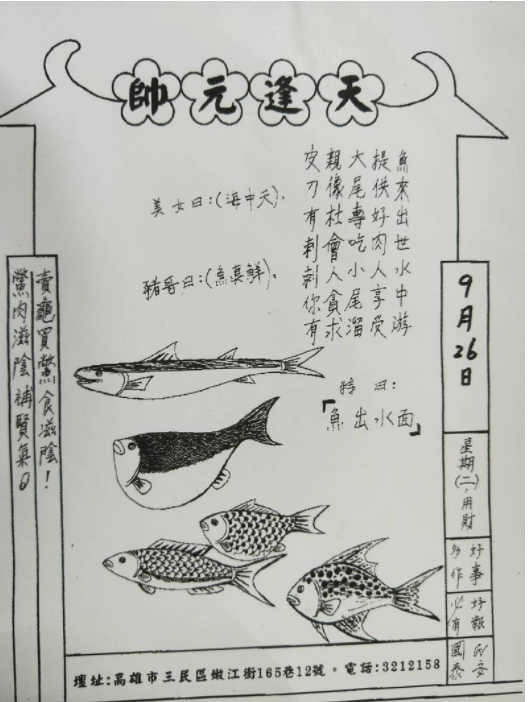 天逢元帥
魚來出世水中游
提供好肉人享受
大尾專吃小尾溜
親像社會人貪求
皮刀有刺你有
美女曰:(海中天)。
豬哥曰:(魚真鮮)。
特曰:
「魚出水面」
9月26日
星期(二),用財
好事
多作
好報
必有
民安
國泰
賣龜買鱉食滋陰!
鱉肉滋陰補賢氣。
壇址:高雄市三民區嫩江街165巷12號。電話:3212158